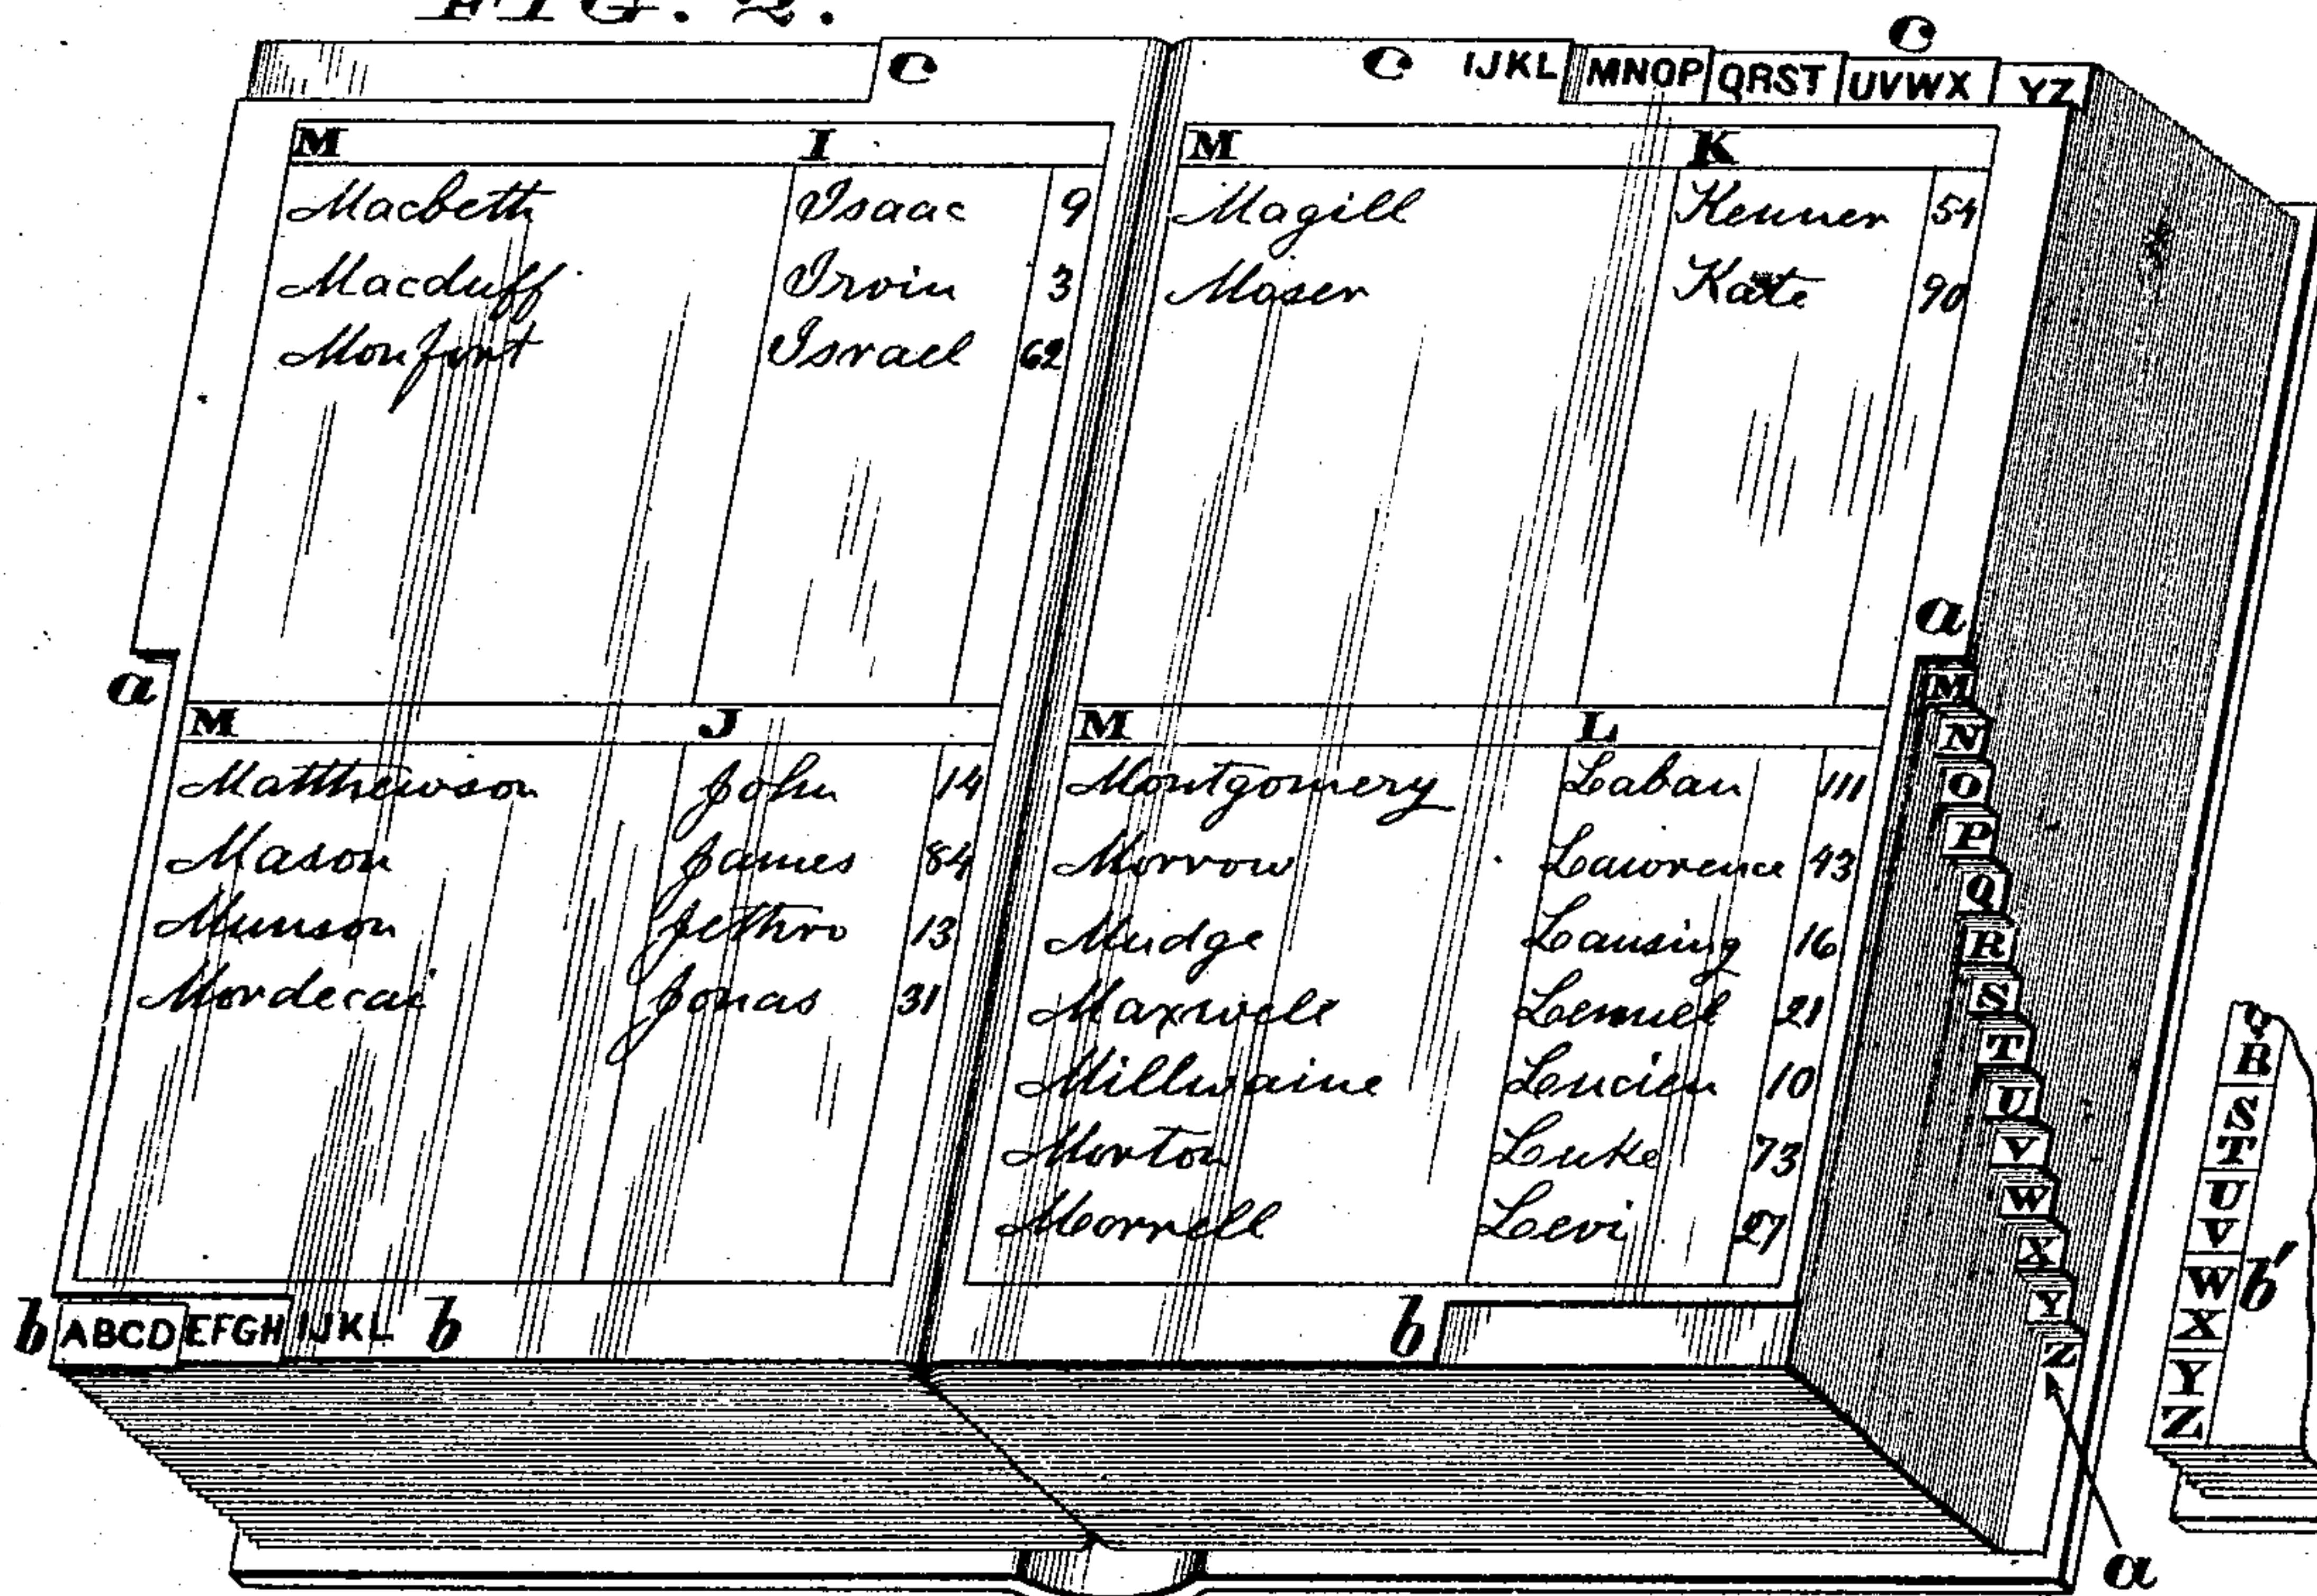 FIG. 2.
c
c IJKL MNOP QRST UVWX YZ
c
M I
Macbeth Isaac 9
Macduff Irvin 3
Monfort Israel 62
M K
Magill Kenner 54
Moser Kate 90
a
a
M J
Matthewson John 14
Mason James 84
Munson Jethro 13
Mordecai Jonas 31
M L
Montgomery Laban 111
Morrow Lawrence 43
Mudge Lansing 16
Maxwell Lemuel 21
Millwaine Lucien 10
Morton Luke 73
Morrell Levi 27
M
N
O
P
Q
R
S
T
U
V
W
X
Y
Z
a
b ABCD EFGH IJKL b
b
Q
R
S
T
U
V
W
X
Y
Z
b'